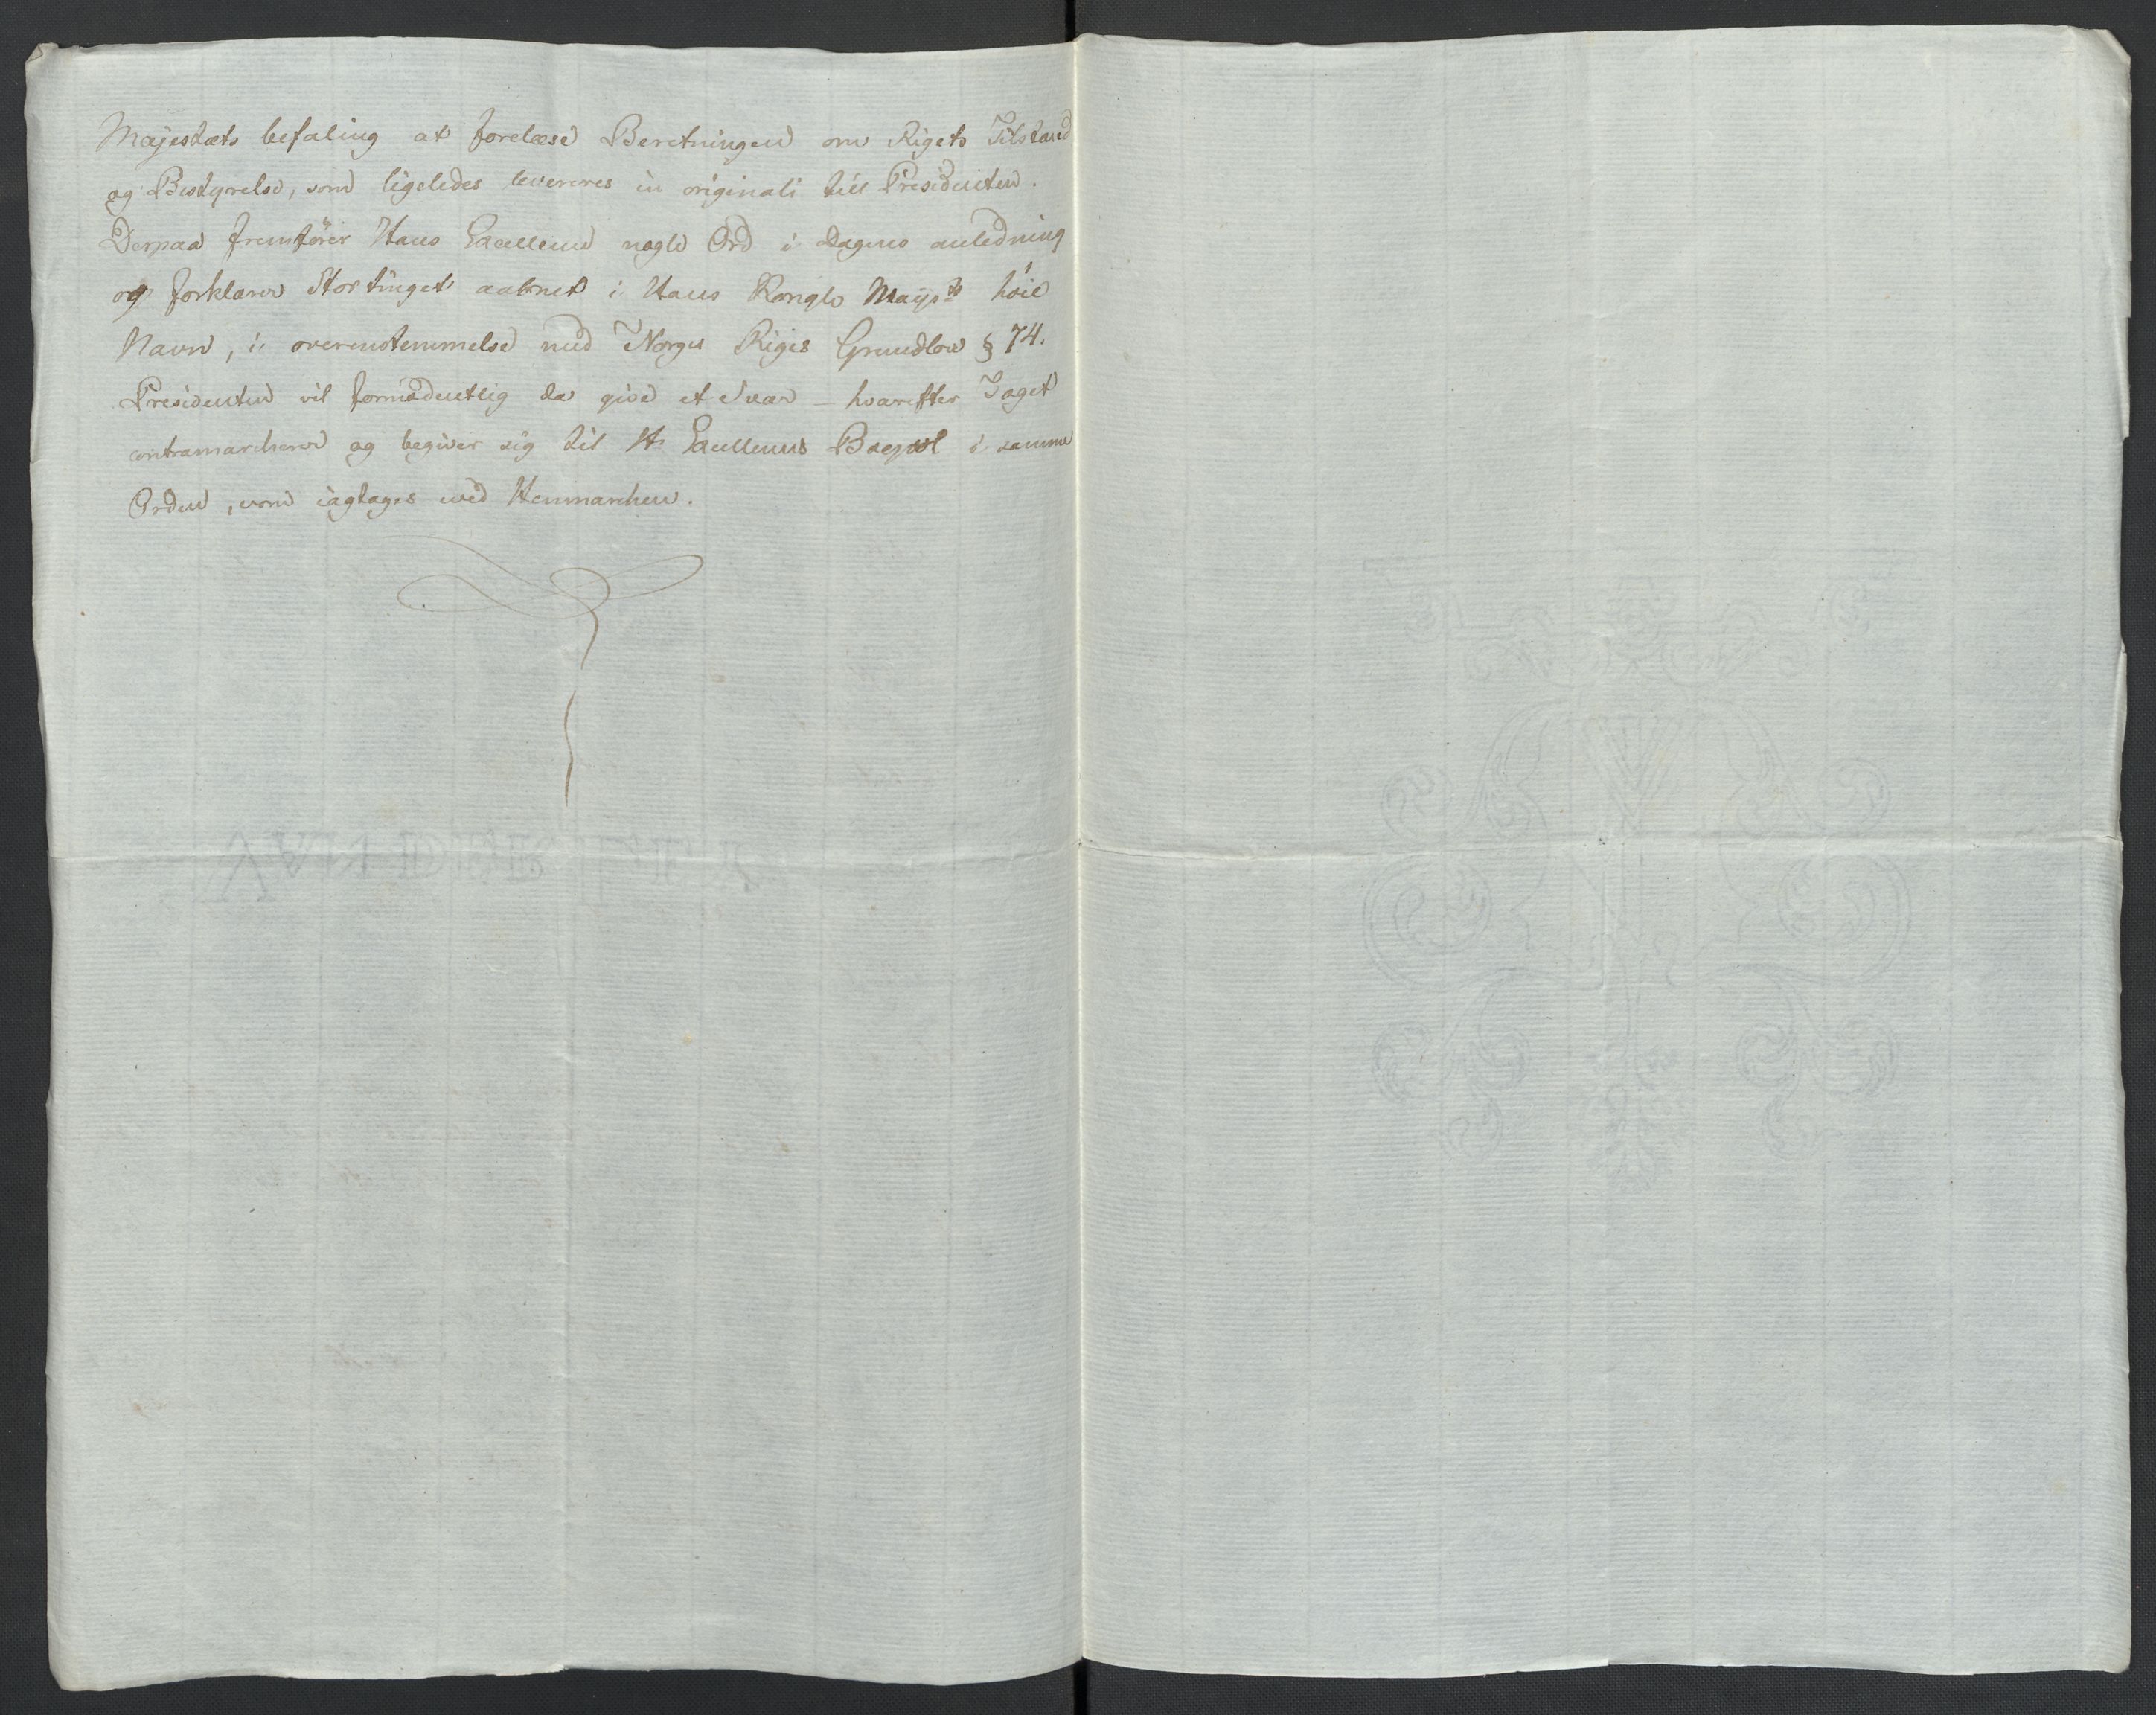 Majestæts befaling at forelæse Beretningen om Rigets Tilstand
og Bestyrelse, som ligeledes leveres in originali till Presidenten.
Derpaa fremförer Hans Excellence nogle Ord i Dagens anledning
og forklarer Stortinget aabnet i Hans Kongle Mayts höie
Navn, i overenstemmelse med Norges Riges Grundlov § 74.
Presidenten vil formodentlig da give et Svar – hvarefter Toget
contramarcherer og begiver sig til Hs Excellences Boepæl i samme
Orden, som iagtages ved Henmarchen.
VAN DER LEY